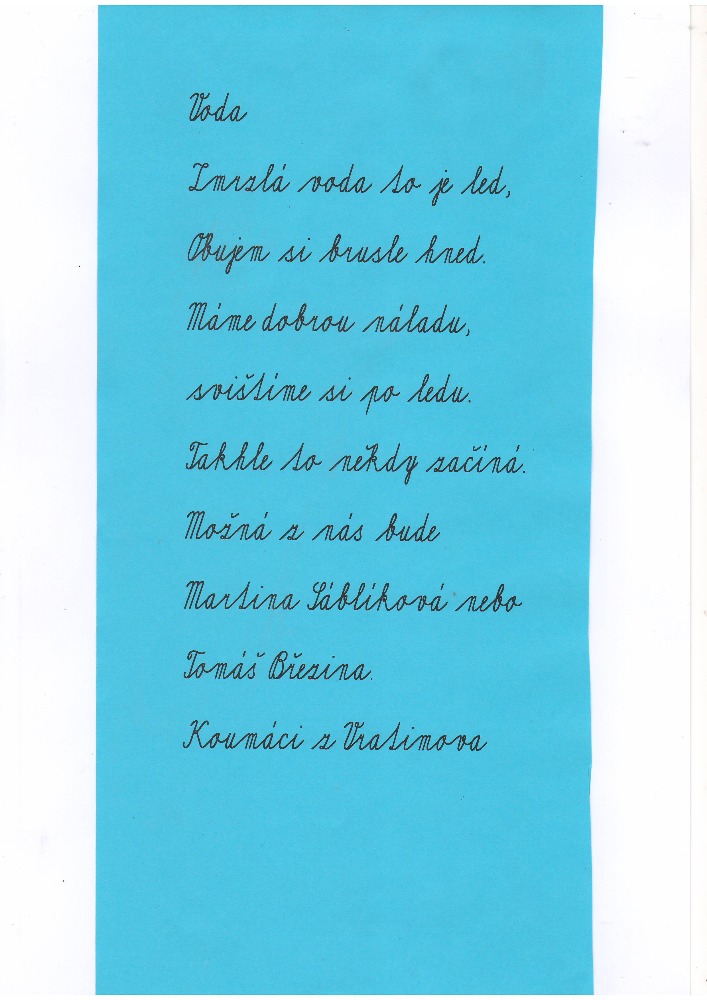 Voda
Zmrzlá voda to je led,
Obujem si brusle hned.
Máme dobrou náladu,
svištíme si po ledu.
Takhle to někdy začíná.
Možná z nás bude
Martina Sáblíková nebo
Tomáš Březina.
Koumáci z Vratimova